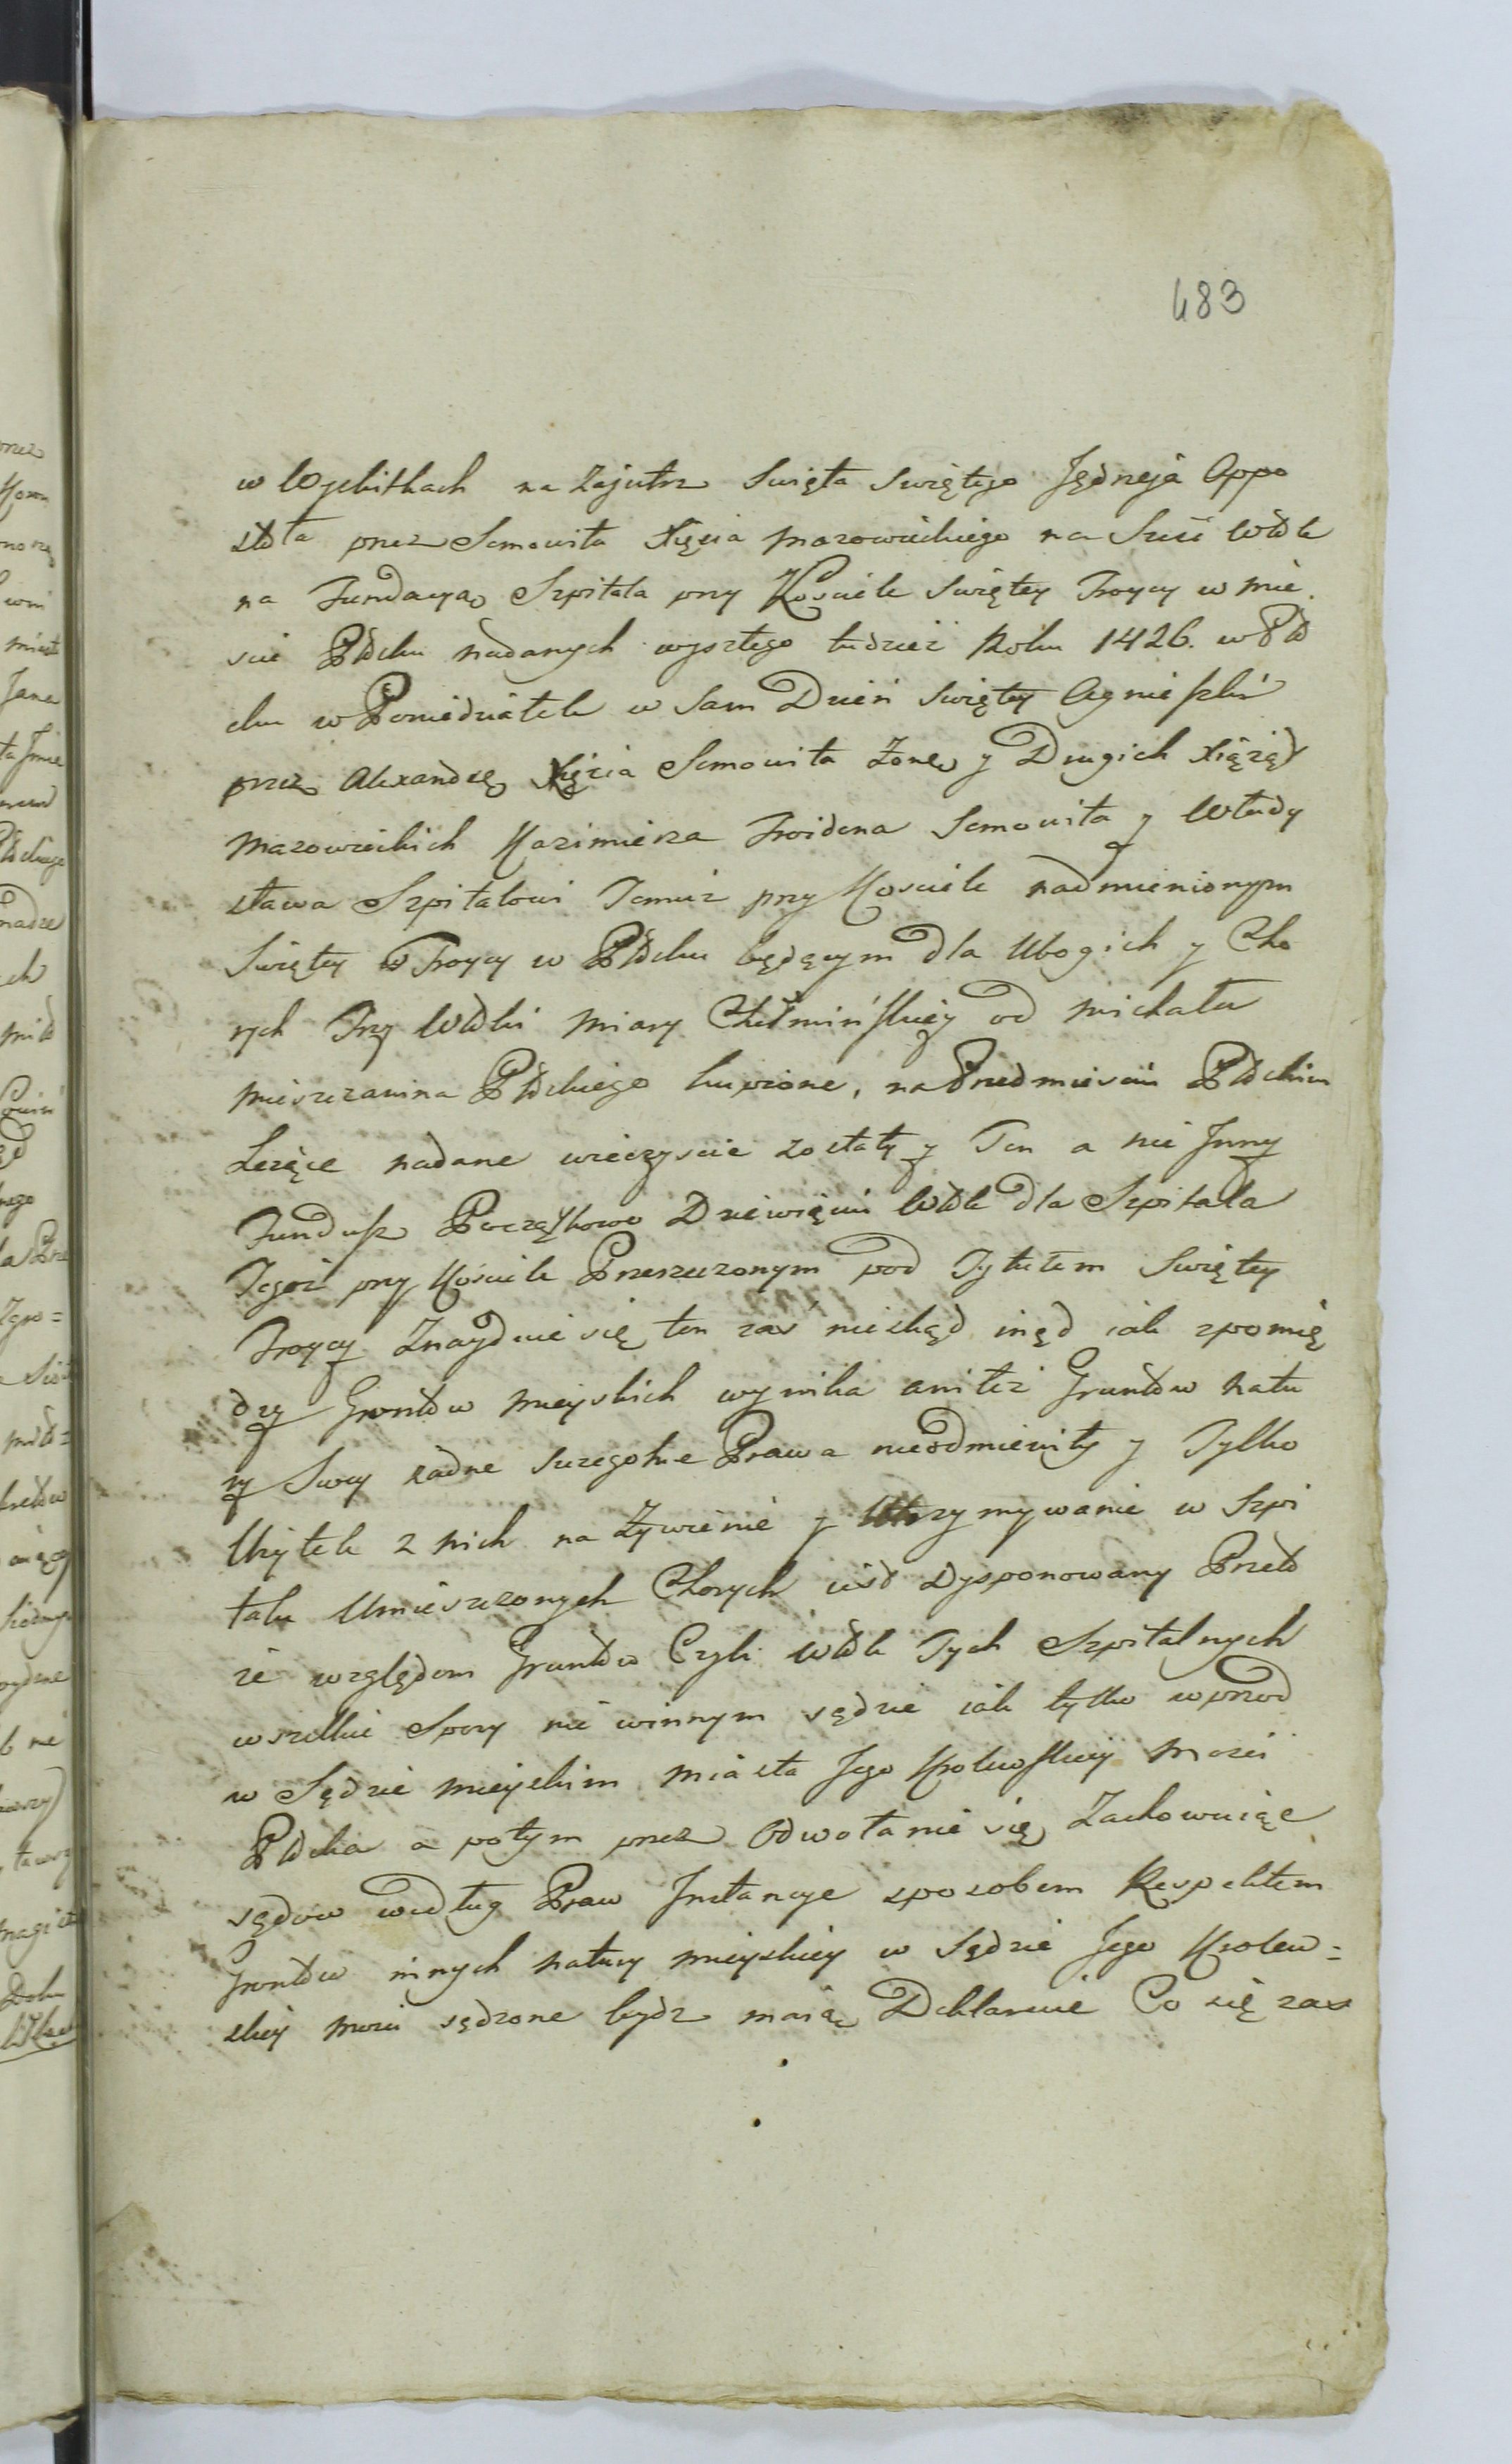 483
w Wyskitkach na Zajutrz Swięta Swiętego Jędrzeja Appo
stoła przez Semowita Xięcia Mazowieckiego na Szesć Włok
na Fundacyą Szpitala przy Kosciele Swiętey Troycy w Mie
scie Płocku nadanych wyszłego tudzież Roku 1426. w Pło
cku w Poniedziałek w Sam Dzień Swiętey Agnieszki
przez Alexandrę Xięcia Semowita Żonę y Drugich Xiążąt
Mazowieckich Kazimierza Troidena Semowita y Włady
sława Szpitalowi Temuż przy Kosciele nadmienionym
Swiętey Troycy w Płocku będącym dla Ubogich y Cho
rych Trzy Włóki Miary Chełmińskiey od Michała
Mieszczanina Płockiego kupione, na Przedmiesciu Płockim
Leżące nadane wieczyscie zostały y Ten a nie Inny
Fundusz Początkowo Dziewięciu Włok dla Szpitala
Tegoż przy Kościele Przerzeczonym pod Tytułem Swiętey
Troycy Znayduie się ten zaś nieskąd inąd iak zpomię
dzy Gróntów Mieyskich wynika aniteż Gruntów natu
ry Swey żadne Szczegolne Prawa nieodmieniły y Tylko
Użytek z nich na Żywienie y Utrzymywanie w Szpi
talu Umieszczonych Chorych iest Dysponowany Przeto
że względem Gruntów Czyli Włók Tych Szpitalnych
wszelkie Spory nie winnym sądzie iak tylko wprzod
w Sądzie Mieyskim Miasta Jego Krolewskiey Mosci
Płocka a potym przez Odwołanie się Zachowuiąc
sądow według Praw Instancye sposobem Respektem
Grontów innych natury Mieyskiey w Sądzie Jego Krolew=
skiey Mosci sądzone bydz maią Deklaruie Co się zas